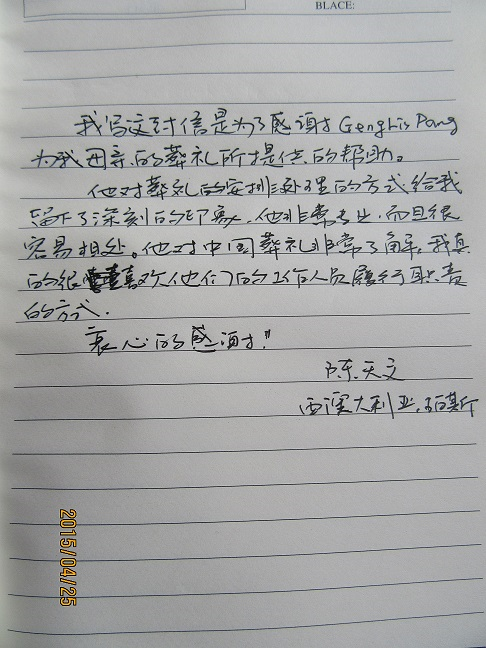 BLACE:
我写这封信是为了感谢 Genghis Pang
为我母亲的葬礼所提供的帮助。
他对葬礼的安排处理的方式给我
留下了深刻的印象,他非常专业,而且很
容易相处。他对中国葬礼非常了解,我真
的很喜欢他们的工作人员履行职责
的方式.
衷心的感谢!
陈天文
西澳大利亚,珀斯
2015/04/25